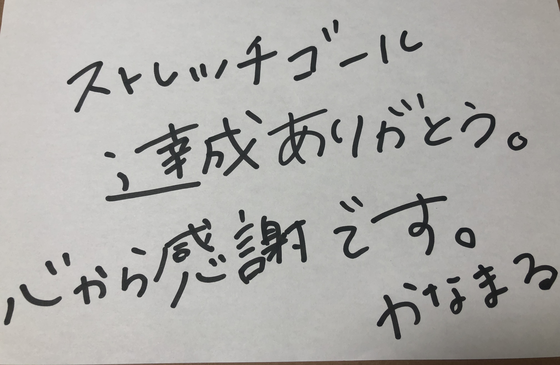 ストレッチゴール
達成ありがとう。
心から感謝です。
かなまる